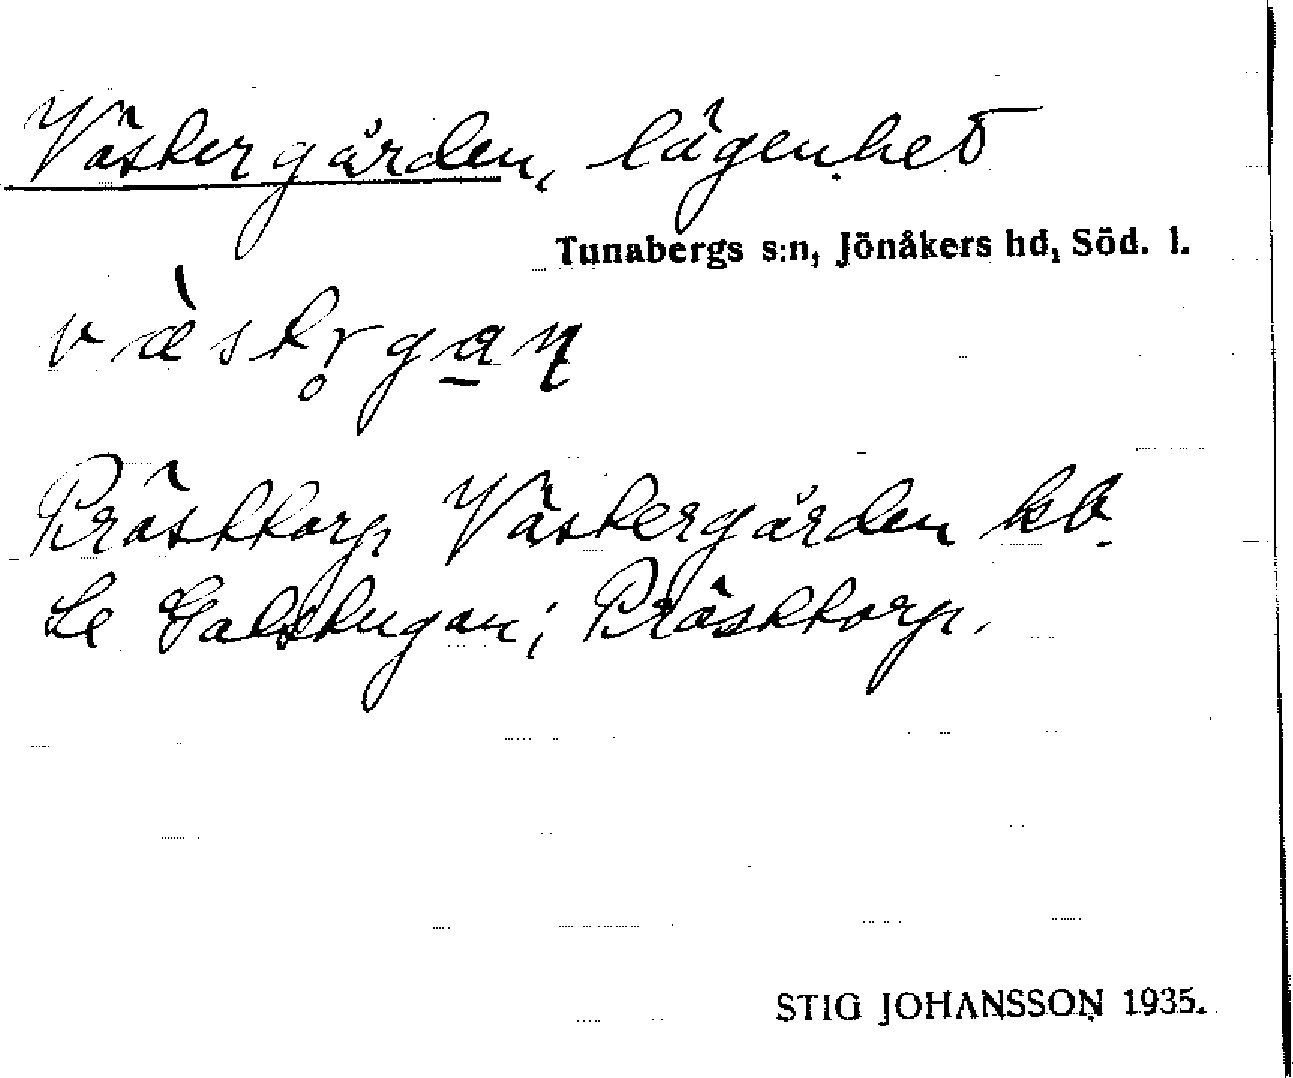 Västergården, lägenhet
Tunabergs s:n, Jönåkers hd, Söd. l.
væ̀str̥ga̠ɳ
Prästtorp Västergården kb.
Se Galstugan; Prästtorp.
STIG JOHANSSON 1935.